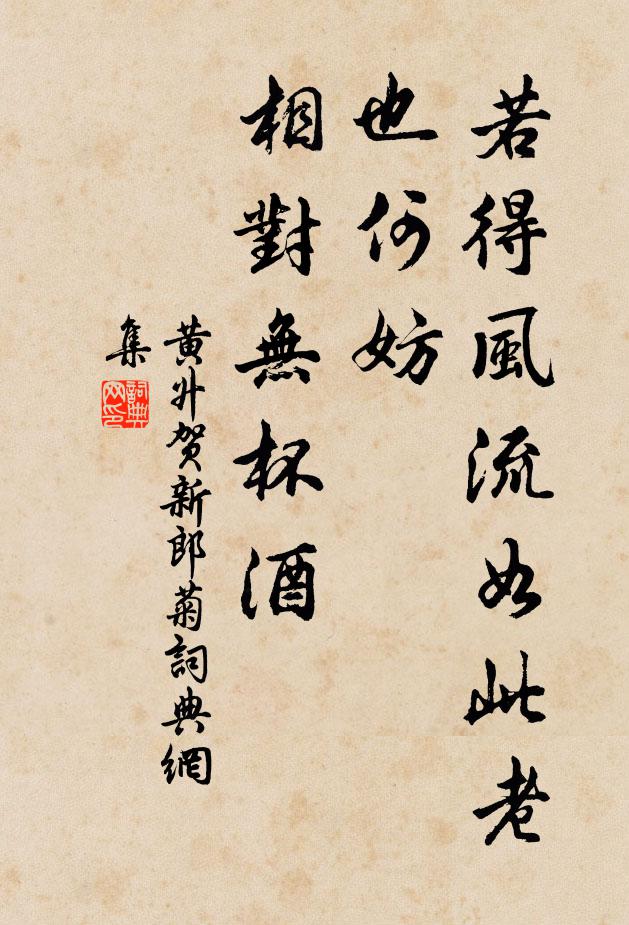 若得風流如此老
也何妨
相對無杯酒
黃升賀新郎菊詞典網
集
詞典
网印